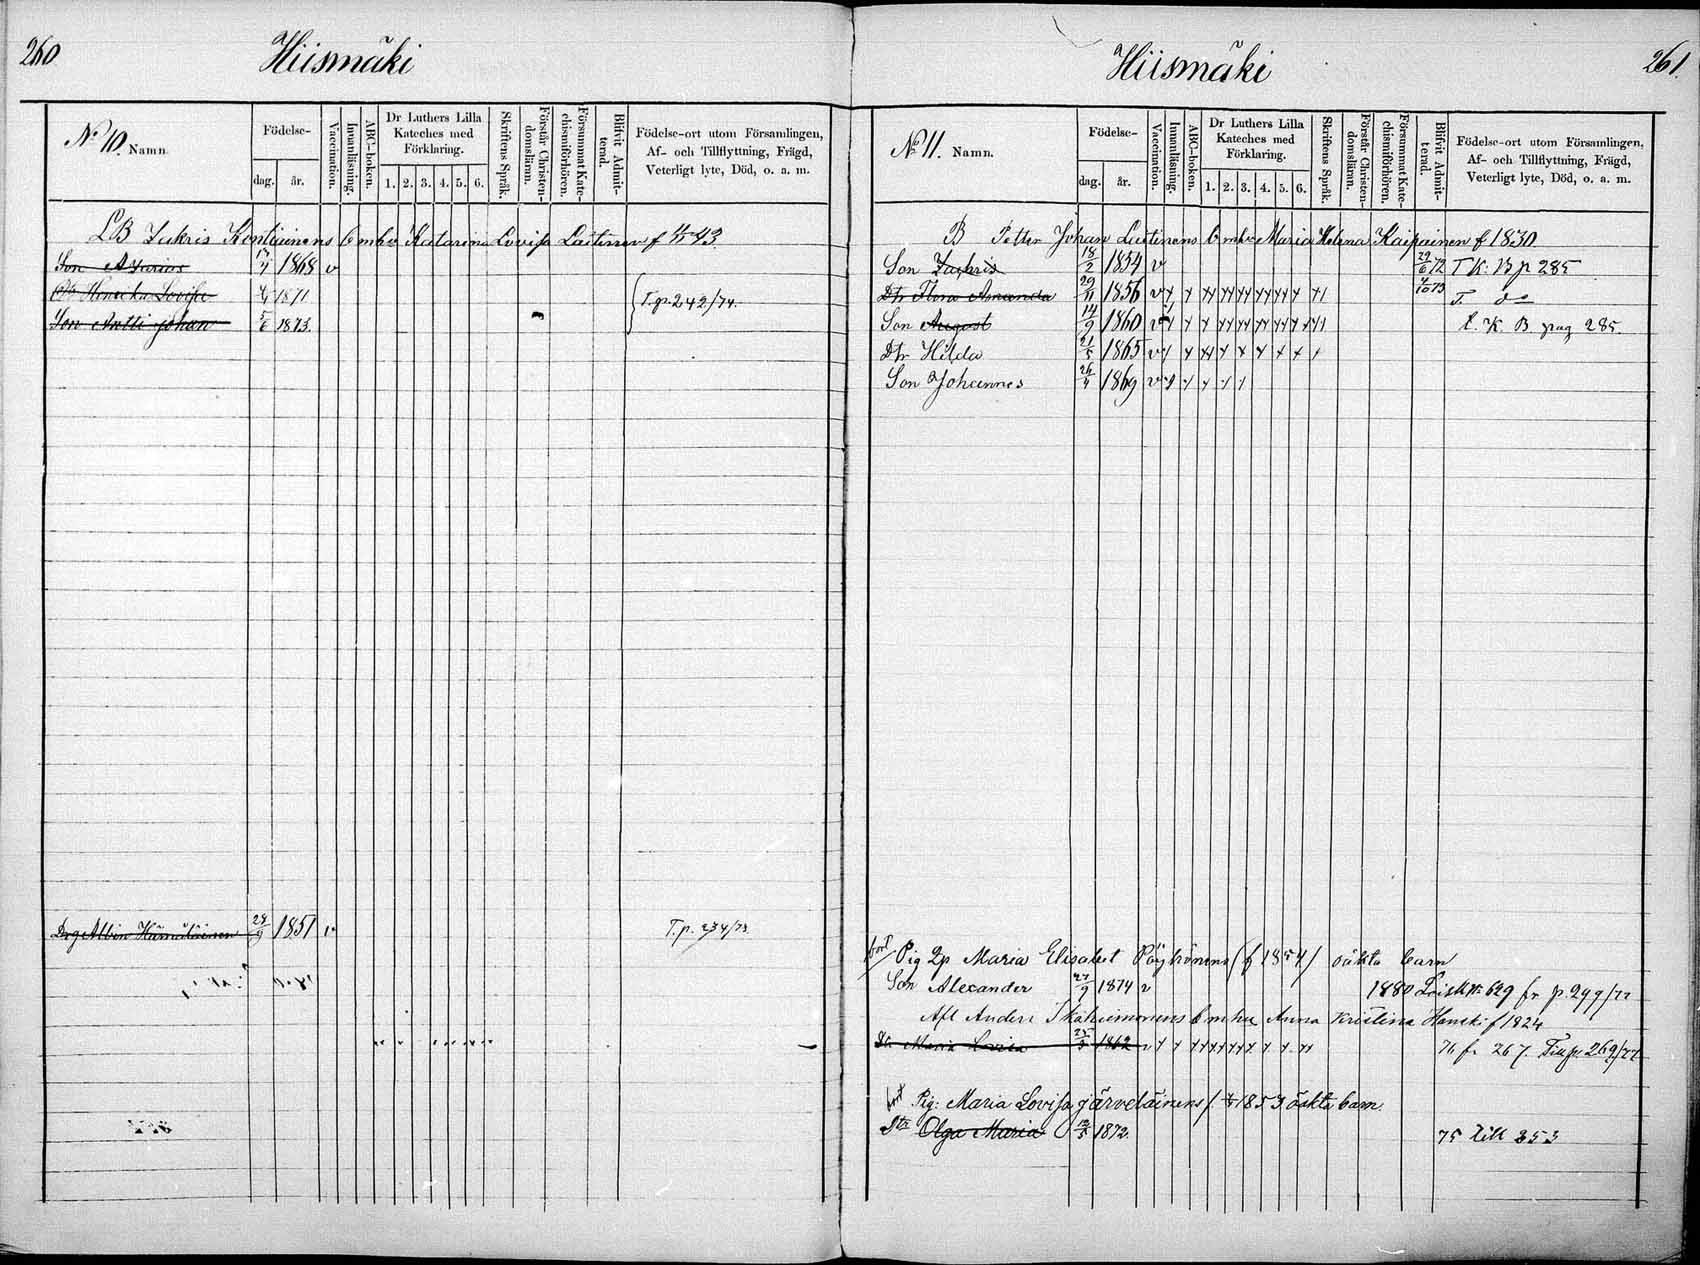 260
Hiismäki
No 10. Namn.
Födelse-
dag. år.
Vaccination.
Innanläsning.
ABC-boken.
Dr Luthers Lilla Kateches med Förklaring.
1. 2. 3. 4. 5. 6.
Skriftens Språk.
Förstår Christendomslänn.
Försummat Katechismiförhören.
Blifvit Admitterad.
Födelse-ort utom Församlingen,
Af- och Tillflyttning, Frägd,
Veterligt lyte, Död, o. a. m.
LB Zakris Kontiainens Enkv Katarina Lovisa Laitinen f 43
Son Azarias 1868 v
Dtr Henrika Lovisa 1871
T.p. 242/74.
Son Antti Johan 1873.
Drg Albin Hämäläinen 1851 v
T.p. 234/73
Hiismäki
261.
No 11. Namn.
Födelse-
dag. år.
Vaccination.
Innanläsning.
ABC-boken.
Dr Luthers Lilla Kateches med Förklaring.
1. 2. 3. 4. 5. 6.
Skriftens Språk.
Förstår Christendomslänn.
Försummat Katechismiförhören.
Blifvit Admitterad.
Födelse-ort utom Församlingen,
Af- och Tillflyttning, Frägd,
Veterligt lyte, Död, o. a. m.
B Petter Johan Laitinens Maria Helena Kaipainen f 1830
Son Zakris 18/2 1854 v 29/6 72 T K: B p 285
Dtr Flora Amanda 29/11 1856 v 4/10 73 T. do
Son August 14/9 1860 v t. K. B pag 285.
Dtr Hilda 21/5 1865 v
Son Johannes 26/4 1869 v
Pig Maria Elisabet Pöyhönens (f 1854) oäkta barn
Son Alexander 27/9 1874 v 1880 No 629 fr p. 299/77
Afl Anders Ikäheimonens Enka Anna Kristina Hanski f 1824
Dtr Maria Lovisa 25/3 1862 v 76 fr 267. Till p. 269/77
Pig: Maria Lovisa Järveläinens f. 1853 oäkta barn.
Dtr Olga Maria 12/5 1872. 75 till 253